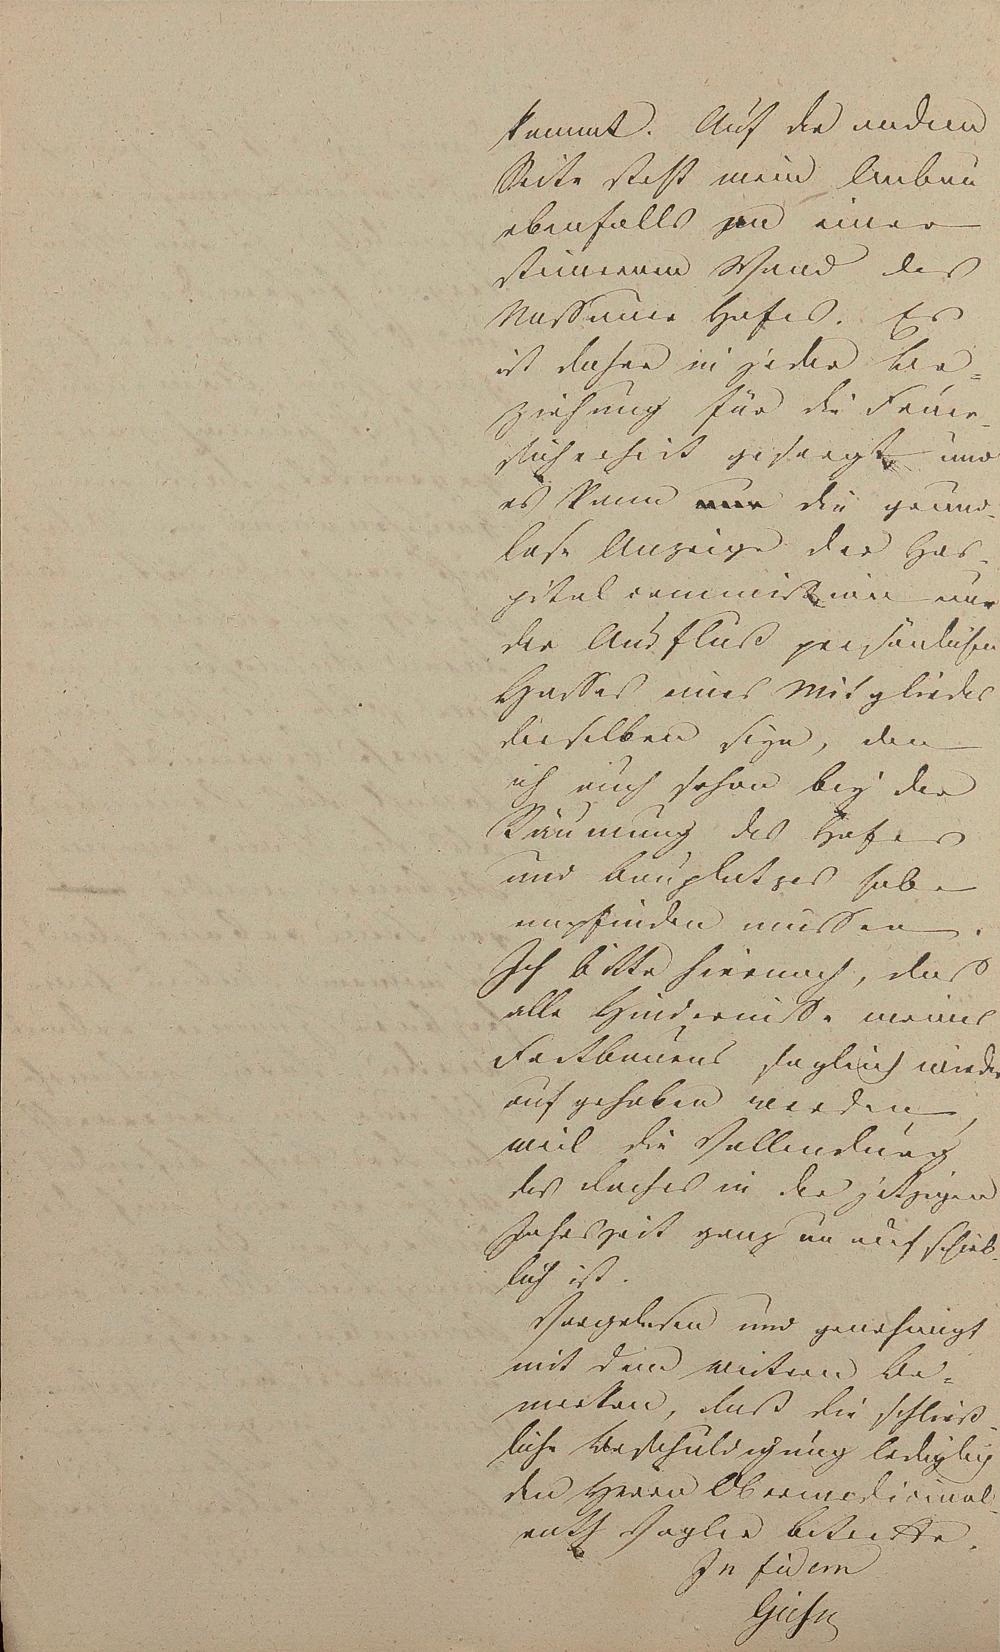 kommt. Auf der andern
Seite stoßt mein Anbau
ebenfalls an einer
steinernen Wand des
Nassauer Hofes. Es
ist daher in jeder Be=
ziehung für die Feuer=
sicherheit gesorgt und
es kann die grund=
lose Anzeige der Hos=
pitalcommission nur
der Ausfluß persönlichen
Hasses eines Mitgliedes
derselben seyn, den
ich auch schon bey der
Räumung des Hofes
und Bauplatzes habe
empfinden müssen.
Ich bitte hiernach, daß
alle Hindernisse meines
Fortbauens sogleich wieder
aufgehoben werden,
weil die Vollendung
des Daches in der jetzigen
Jahrszeit ganz unaufschieb=
lich ist.
Vorgelesen und genehmigt
mit dem weitern Be=
merken, daß die schließ=
liche Beschuldigung lediglich
den Herrn Obermedicinal=
rath Vogler betreffe.
In fidem